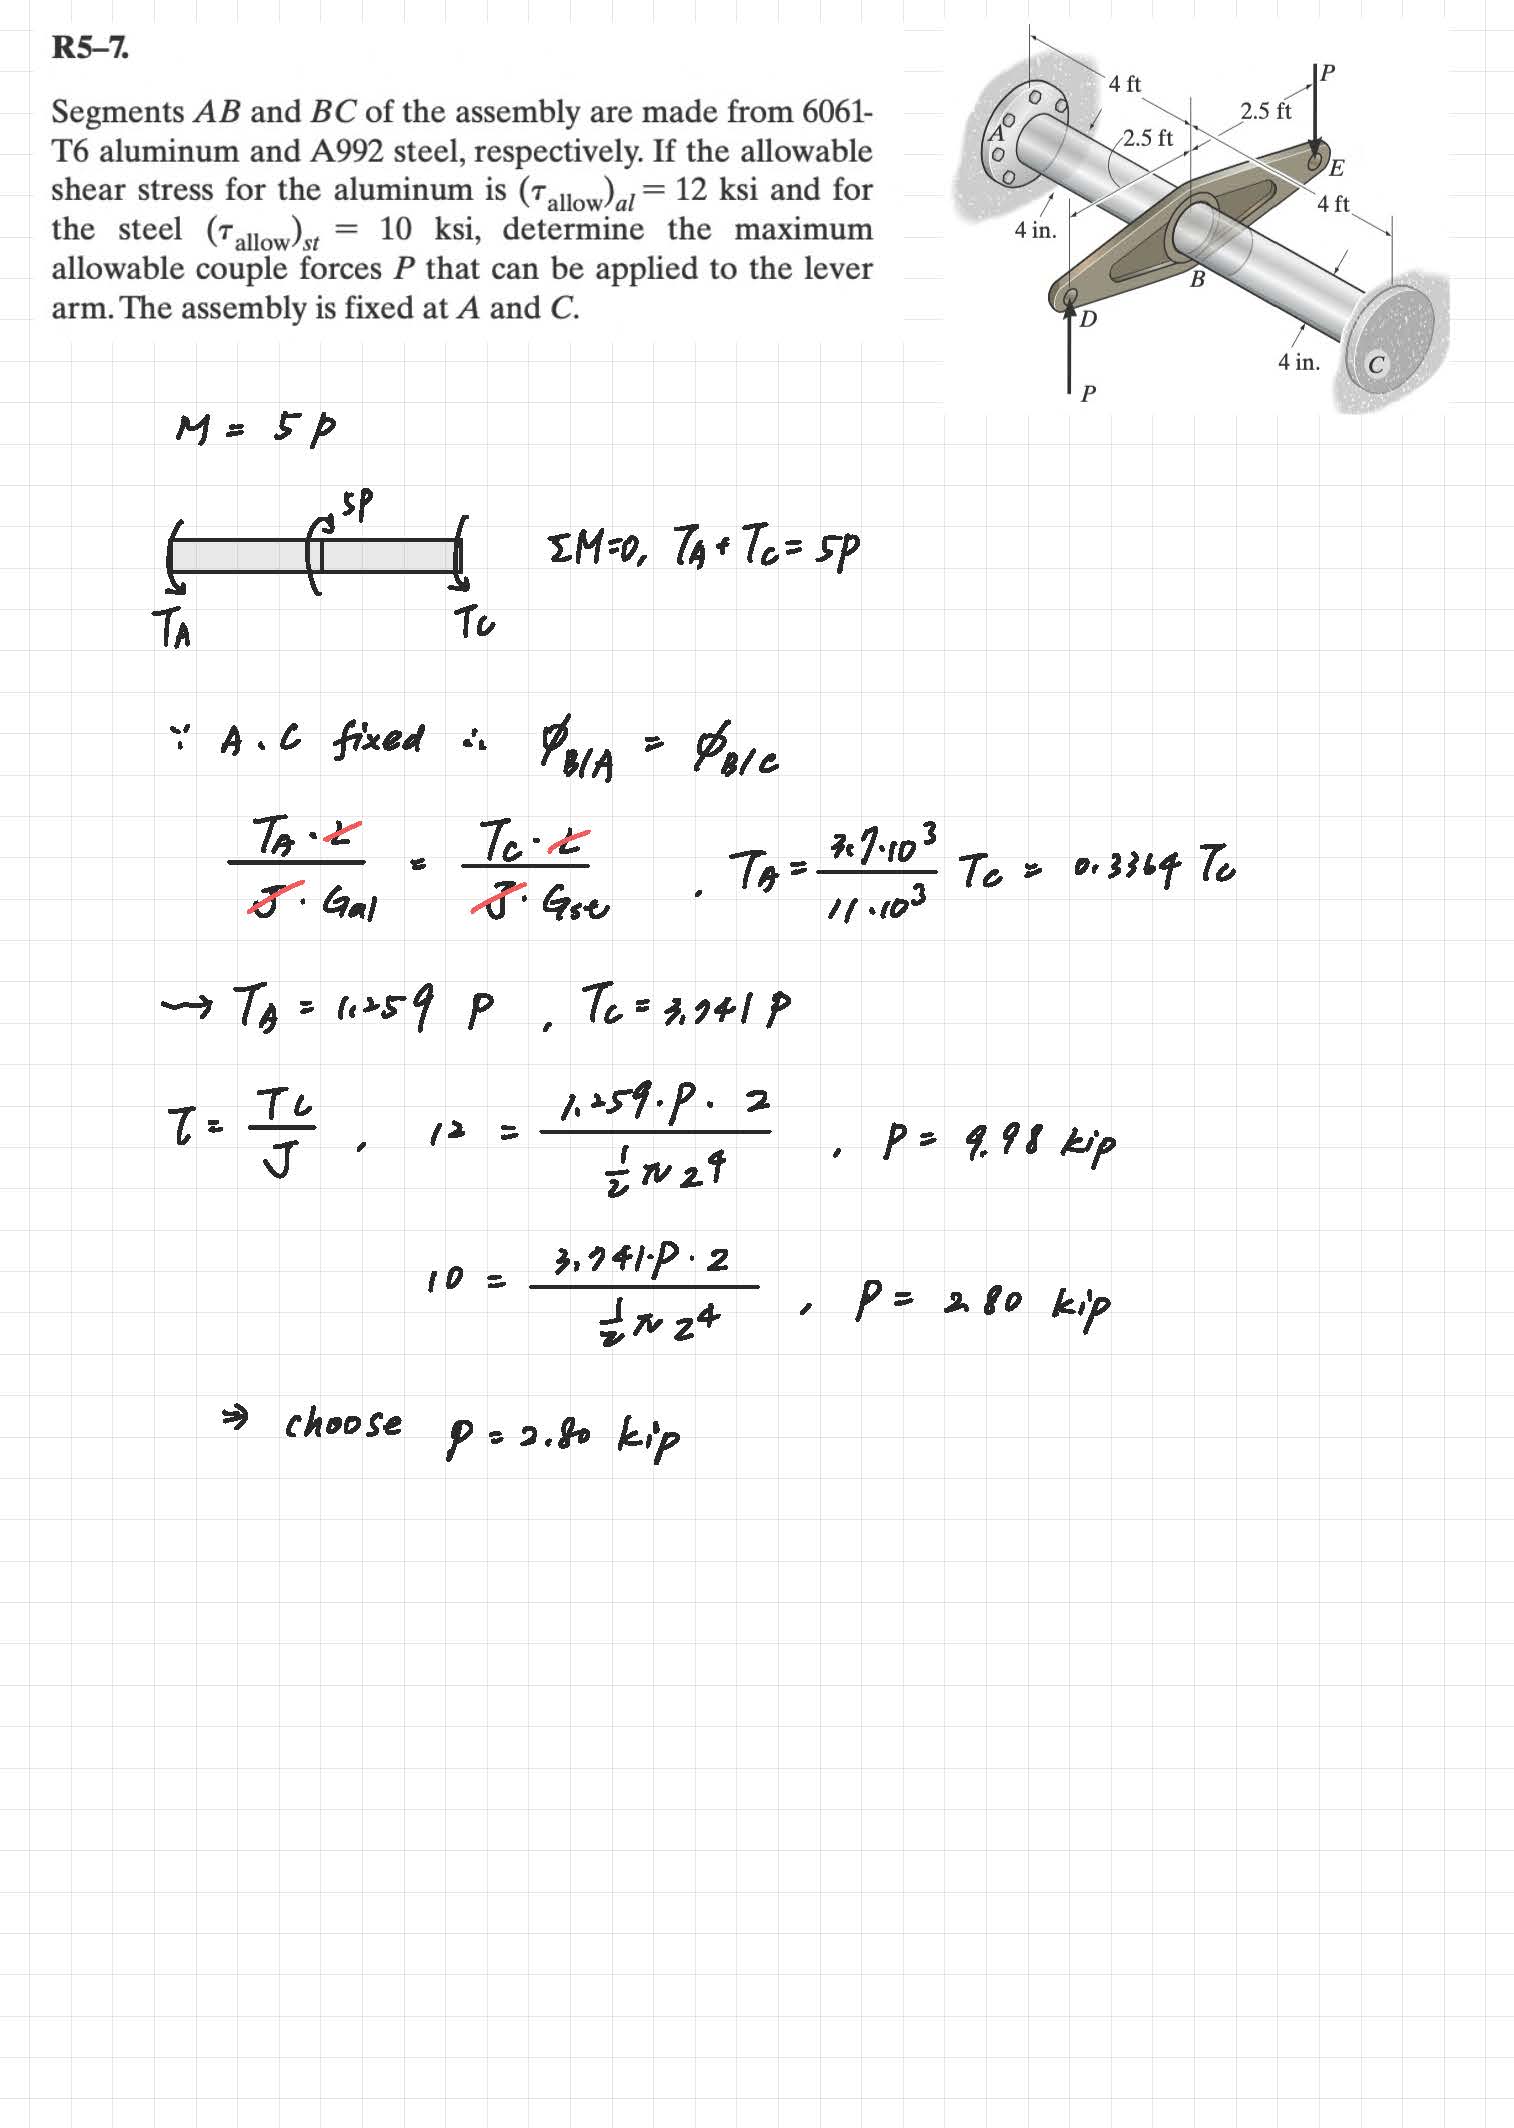 R5–7.
Segments AB and BC of the assembly are made from 6061-
T6 aluminum and A992 steel, respectively. If the allowable
shear stress for the aluminum is (τallow)al = 12 ksi and for
the steel (τallow)st = 10 ksi, determine the maximum
allowable couple forces P that can be applied to the lever
arm. The assembly is fixed at A and C.
P
4 ft
2.5 ft
A
2.5 ft
E
4 ft
4 in.
B
D
4 in.
C
P
M = 5P
5P
ΣM=0, TA + TC = 5P
TA
TC
∵ A.C fixed ∴ ØB/A = ØB/C
TA · L / J · Gal = TC · L / J · Gst , TA = 3.7·10³ / 11·10³ TC = 0.3364 TC
→ TA = 1.259 P , TC = 3.741 P
τ = Tc / J , 12 = 1.259·P·2 / ½ π 2⁴ , P = 9.98 kip
10 = 3.741·P·2 / ½ π 2⁴ , P = 2.80 kip
⇒ choose P = 2.80 kip